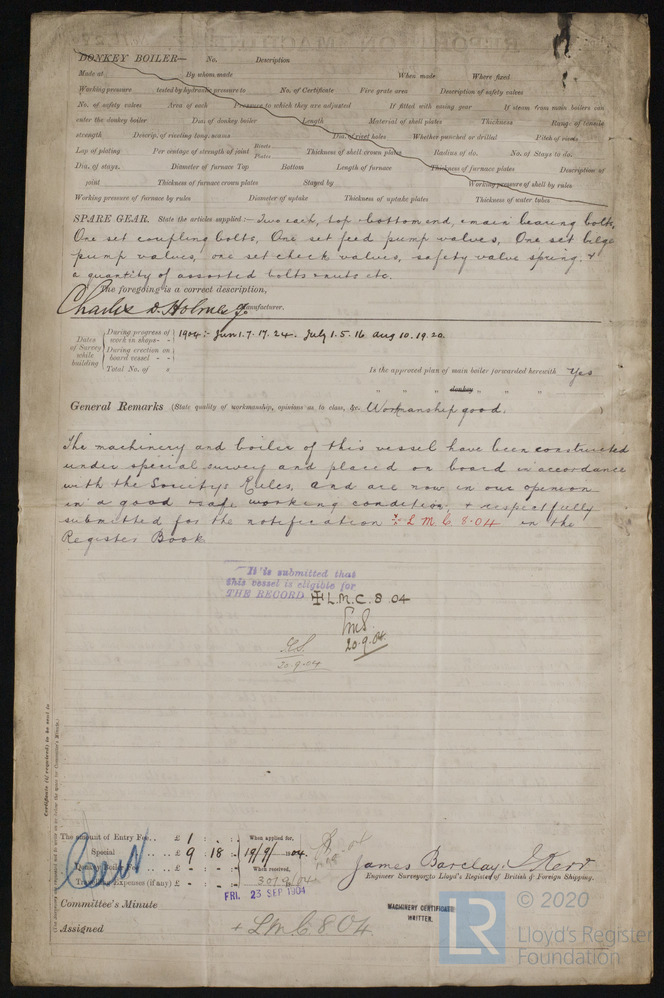 DONKEY BOILER— No. Description
Made at By whom made When made Where fixed
Working pressure tested by hydraulic pressure to No. of Certificate Fire grate area Description of safety valves
No. of safety valves Area of each Pressure to which they are adjusted If fitted with easing gear If steam from main boilers can
enter the donkey boiler Dia. of donkey boiler Length Material of shell plates Thickness Range of tensile
strength Descrip. of riveting long. seams Dia. of rivet holes Whether punched or drilled Pitch of rivets
Lap of plating Per centage of strength of joint Rivets Plates Thickness of shell crown plates Radius of do. No. of Stays to do.
Dia. of stays. Diameter of furnace Top Bottom Length of furnace Thickness of furnace plates Description of
joint Thickness of furnace crown plates Stayed by Working pressure of shell by rules
Working pressure of furnace by rules Diameter of uptake Thickness of uptake plates Thickness of water tubes
SPARE GEAR. State the articles supplied:— Two each, top & bottom end, & main bearing bolts,
One set coupling bolts, One set feed pump valves, One set bilge
pump valves, one set check valves, safety valve spring, &
a quantity of assorted bolts & nuts etc.
The foregoing is a correct description,
Charles D. Holmes Manufacturer.
Dates of Survey while building
During progress of work in shops - - 1904:- Jun 1. 7. 17. 24. July 1. 5. 16 Aug 10. 19. 20.
During erection on board vessel - -
Total No. of
Is the approved plan of main boiler forwarded herewith Yes
" " " donkey " " "
General Remarks (State quality of workmanship, opinions as to class, &c. Workmanship good.
The machinery and boiler of this vessel have been constructed
under special survey and placed on board in accordance
with the Society's Rules, and are now in our opinion
in a good & safe working condition, & respectfully
submitted for the notification ✠ L M C 8.04 in the
Register Book.
It is submitted that
this vessel is eligible for
THE RECORD ✠ L.M.C. 8.04
20.9.04
20.9.04
Certificate (if required) to be sent to
The amount of Entry Fee . . £ 1 : - : - When applied for,
Special . . . . £ 9 : 18 : - 19/9/04.
Donkey Boiler Fee . . . £ - : - : - When received,
Travelling Expenses (if any) £ - : - : - 30/9/04
James Barclay. J. Kerr
Engineer Surveyor to Lloyd's Register of British & Foreign Shipping.
FRI. 23 SEP 1904
Committee's Minute
MACHINERY CERTIFICATE
WRITTEN.
Assigned + L M C. 8.04.
LR © 2020
Lloyd's Register
Foundation